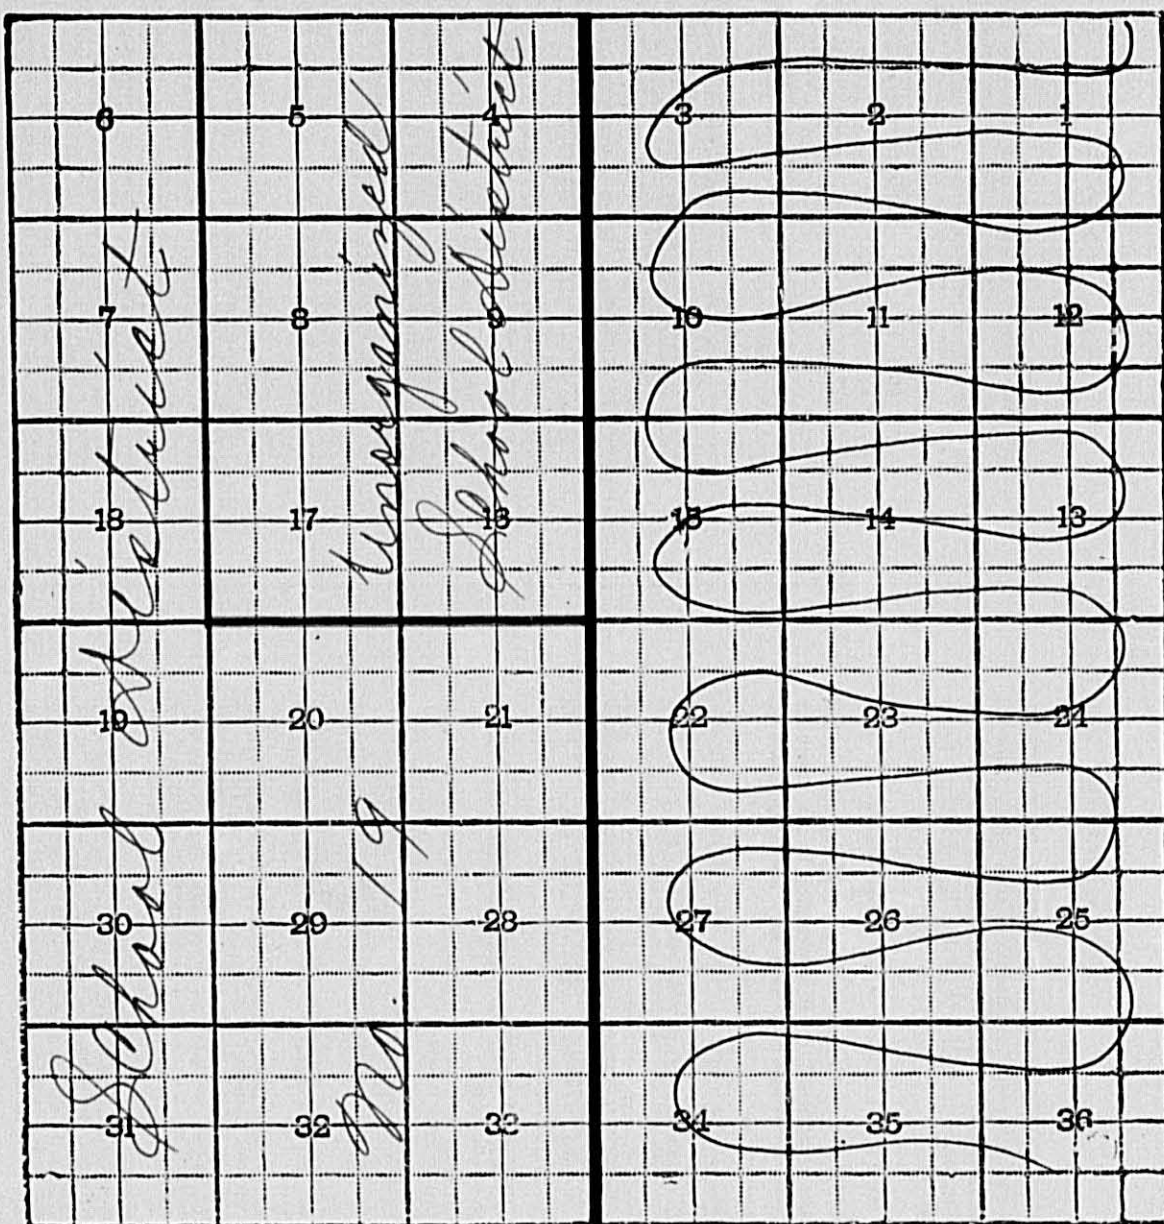 6 5 4 3 2 1
7 8 9 10 11 12
18 17 16 15 14 13
19 20 21 22 23 24
30 29 28 27 26 25
31 32 33 34 35 36
School District
No. 19
Unorganized
School District